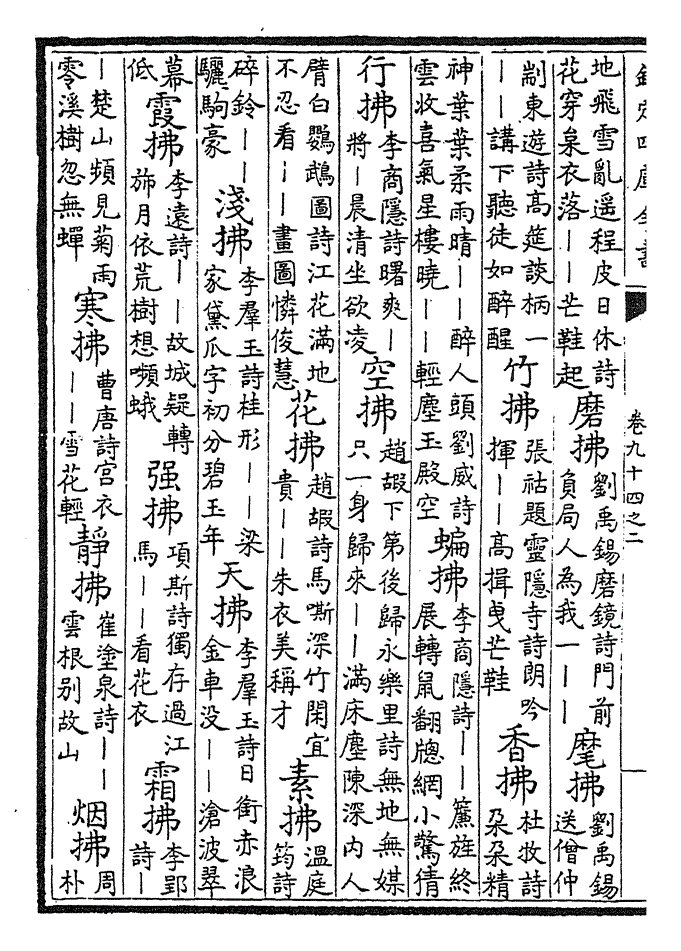 欽定四庫全書
卷九十四之二
地飛雪亂遥程皮日休詩花穿枲衣落――芒鞋起 磨拂 劉禹錫磨鏡詩門前負局人為我一―― 麾拂 劉禹錫送僧仲
剬東遊詩高筵談柄一――講下聽徒如醉醒 竹拂 張祜題靈隱寺詩朗吟揮――高揖曵芒鞋 香拂 杜牧詩朶朶精
神葉葉柔雨晴――醉人頭劉威詩雲收喜氣星樓曉――輕塵玉殿空 蝙拂 李商隱詩――簾旌終展轉鼠翻牕網小驚猜
行拂 李商隱詩曙爽―將―晨清坐欲凌 空拂 趙嘏下第後歸永樂里詩無地無媒只一身歸來――滿床塵陳深内人
臂白鸚鵡圖詩江花滿地不忍看―――畫圖憐俊慧 花拂 趙嘏詩馬嘶深竹閑宜貴――朱衣美稱才 素拂 溫庭筠詩
碎鈴――驪駒豪 淺拂 李羣玉詩桂形――梁家黛瓜字初分碧玉年 天拂 李羣玉詩日銜赤浪金車没――滄波翠
幕低 霞拂 李遠詩――故城疑轉斾月依荒樹想嚬蛾 强拂 項斯詩獨存過江馬――看花衣 霜拂 李郢詩―
―楚山頻見菊雨零溪樹忽無蟬 寒拂 曹唐詩宫衣――雪花輕 靜拂 崔塗泉詩――雲根别故山 烟拂 周朴